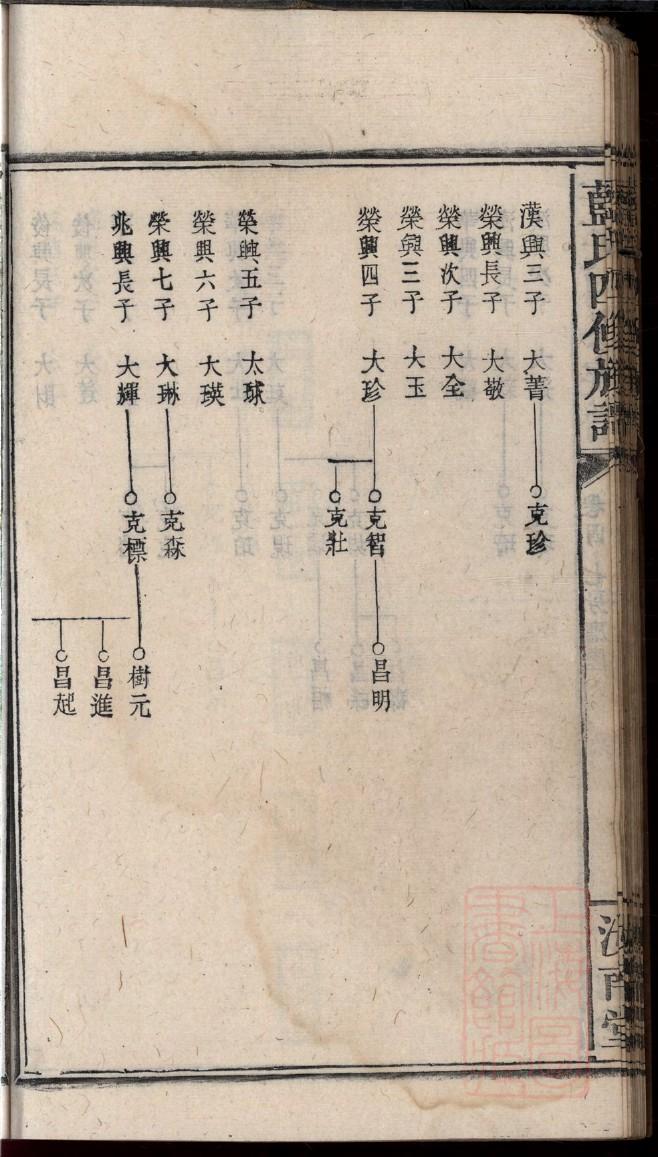 藍氏四修族譜
漢興三子 大菁 克珍
榮興長子 大敬
榮興次子 大全
榮興三子 大玉
榮興四子 大珍 克智 昌明
克壯
榮興五子 大球
榮興六子 大瑛
榮興七子 大琳 克森
兆興長子 大輝 克標 樹元
昌進
昌起
汝南堂